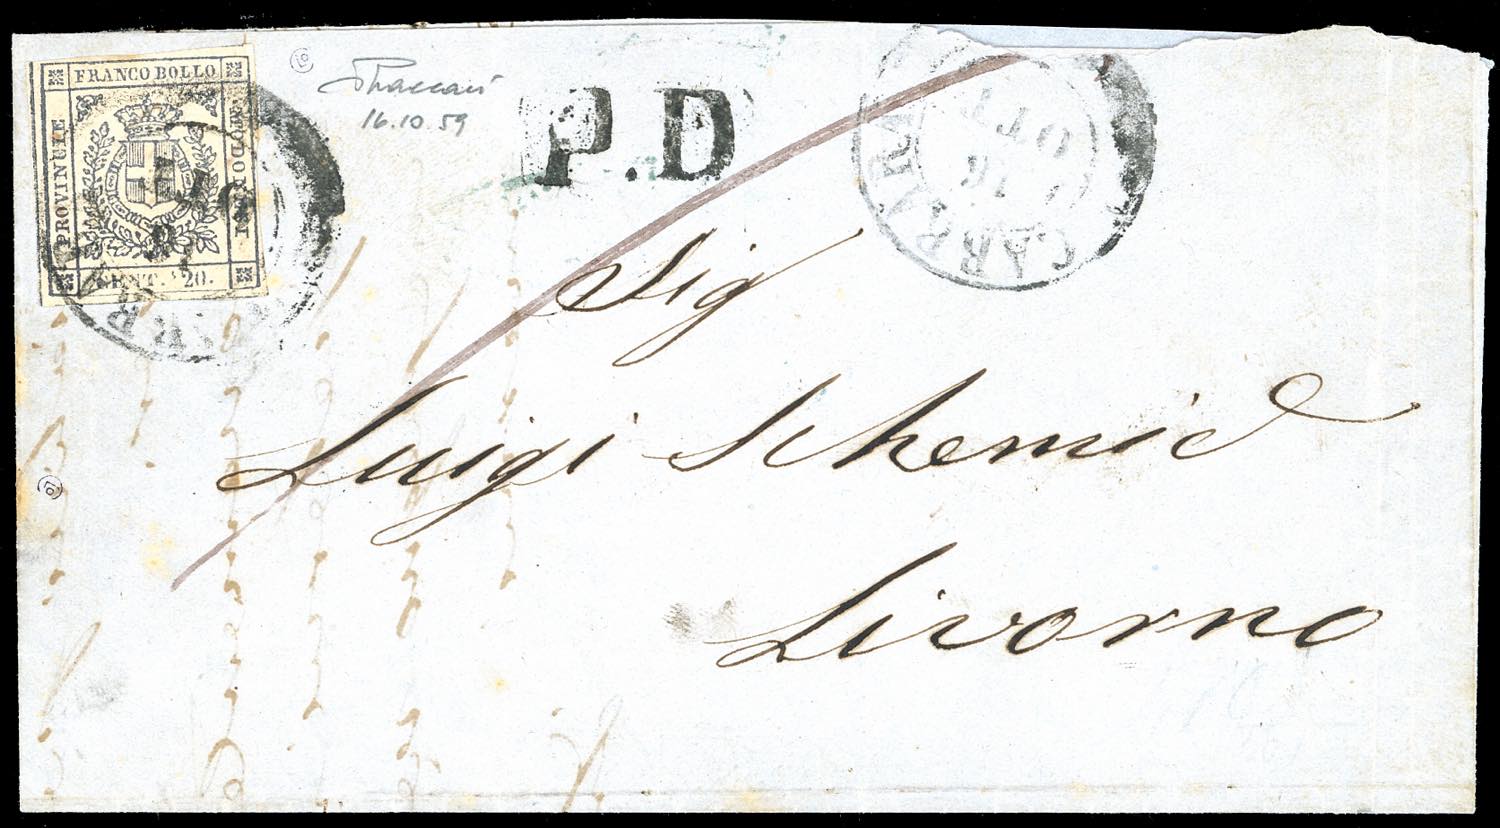 FRANCO BOLLO
PROVINCIE
MODONESI
CENT. 20.
16.10.59
P.D
CARRARA
16
OTT
Sig
Luigi Schemid
Livorno